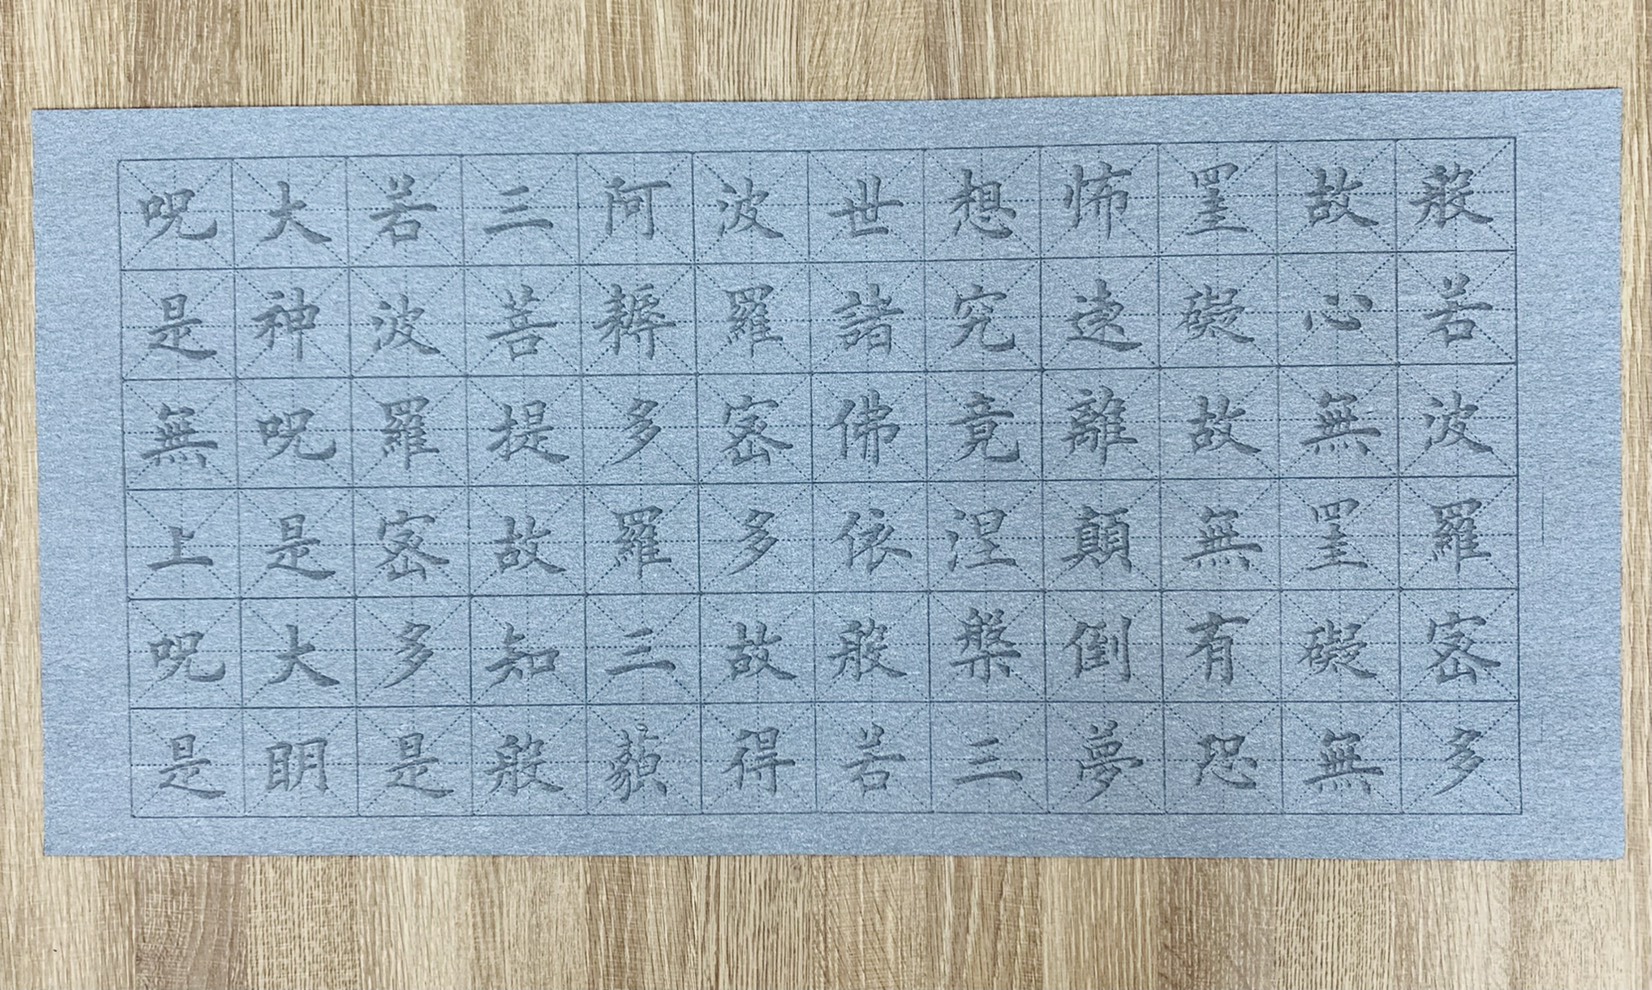 般若波羅密多
故心無罣礙無
罣礙故無有恐
怖遠離顛倒夢
想究竟涅槃三
世諸佛依般若
波羅密多故得
阿耨多羅三藐
三菩提故知般
若波羅密多是
大神呪是大明
呪是無上呪是